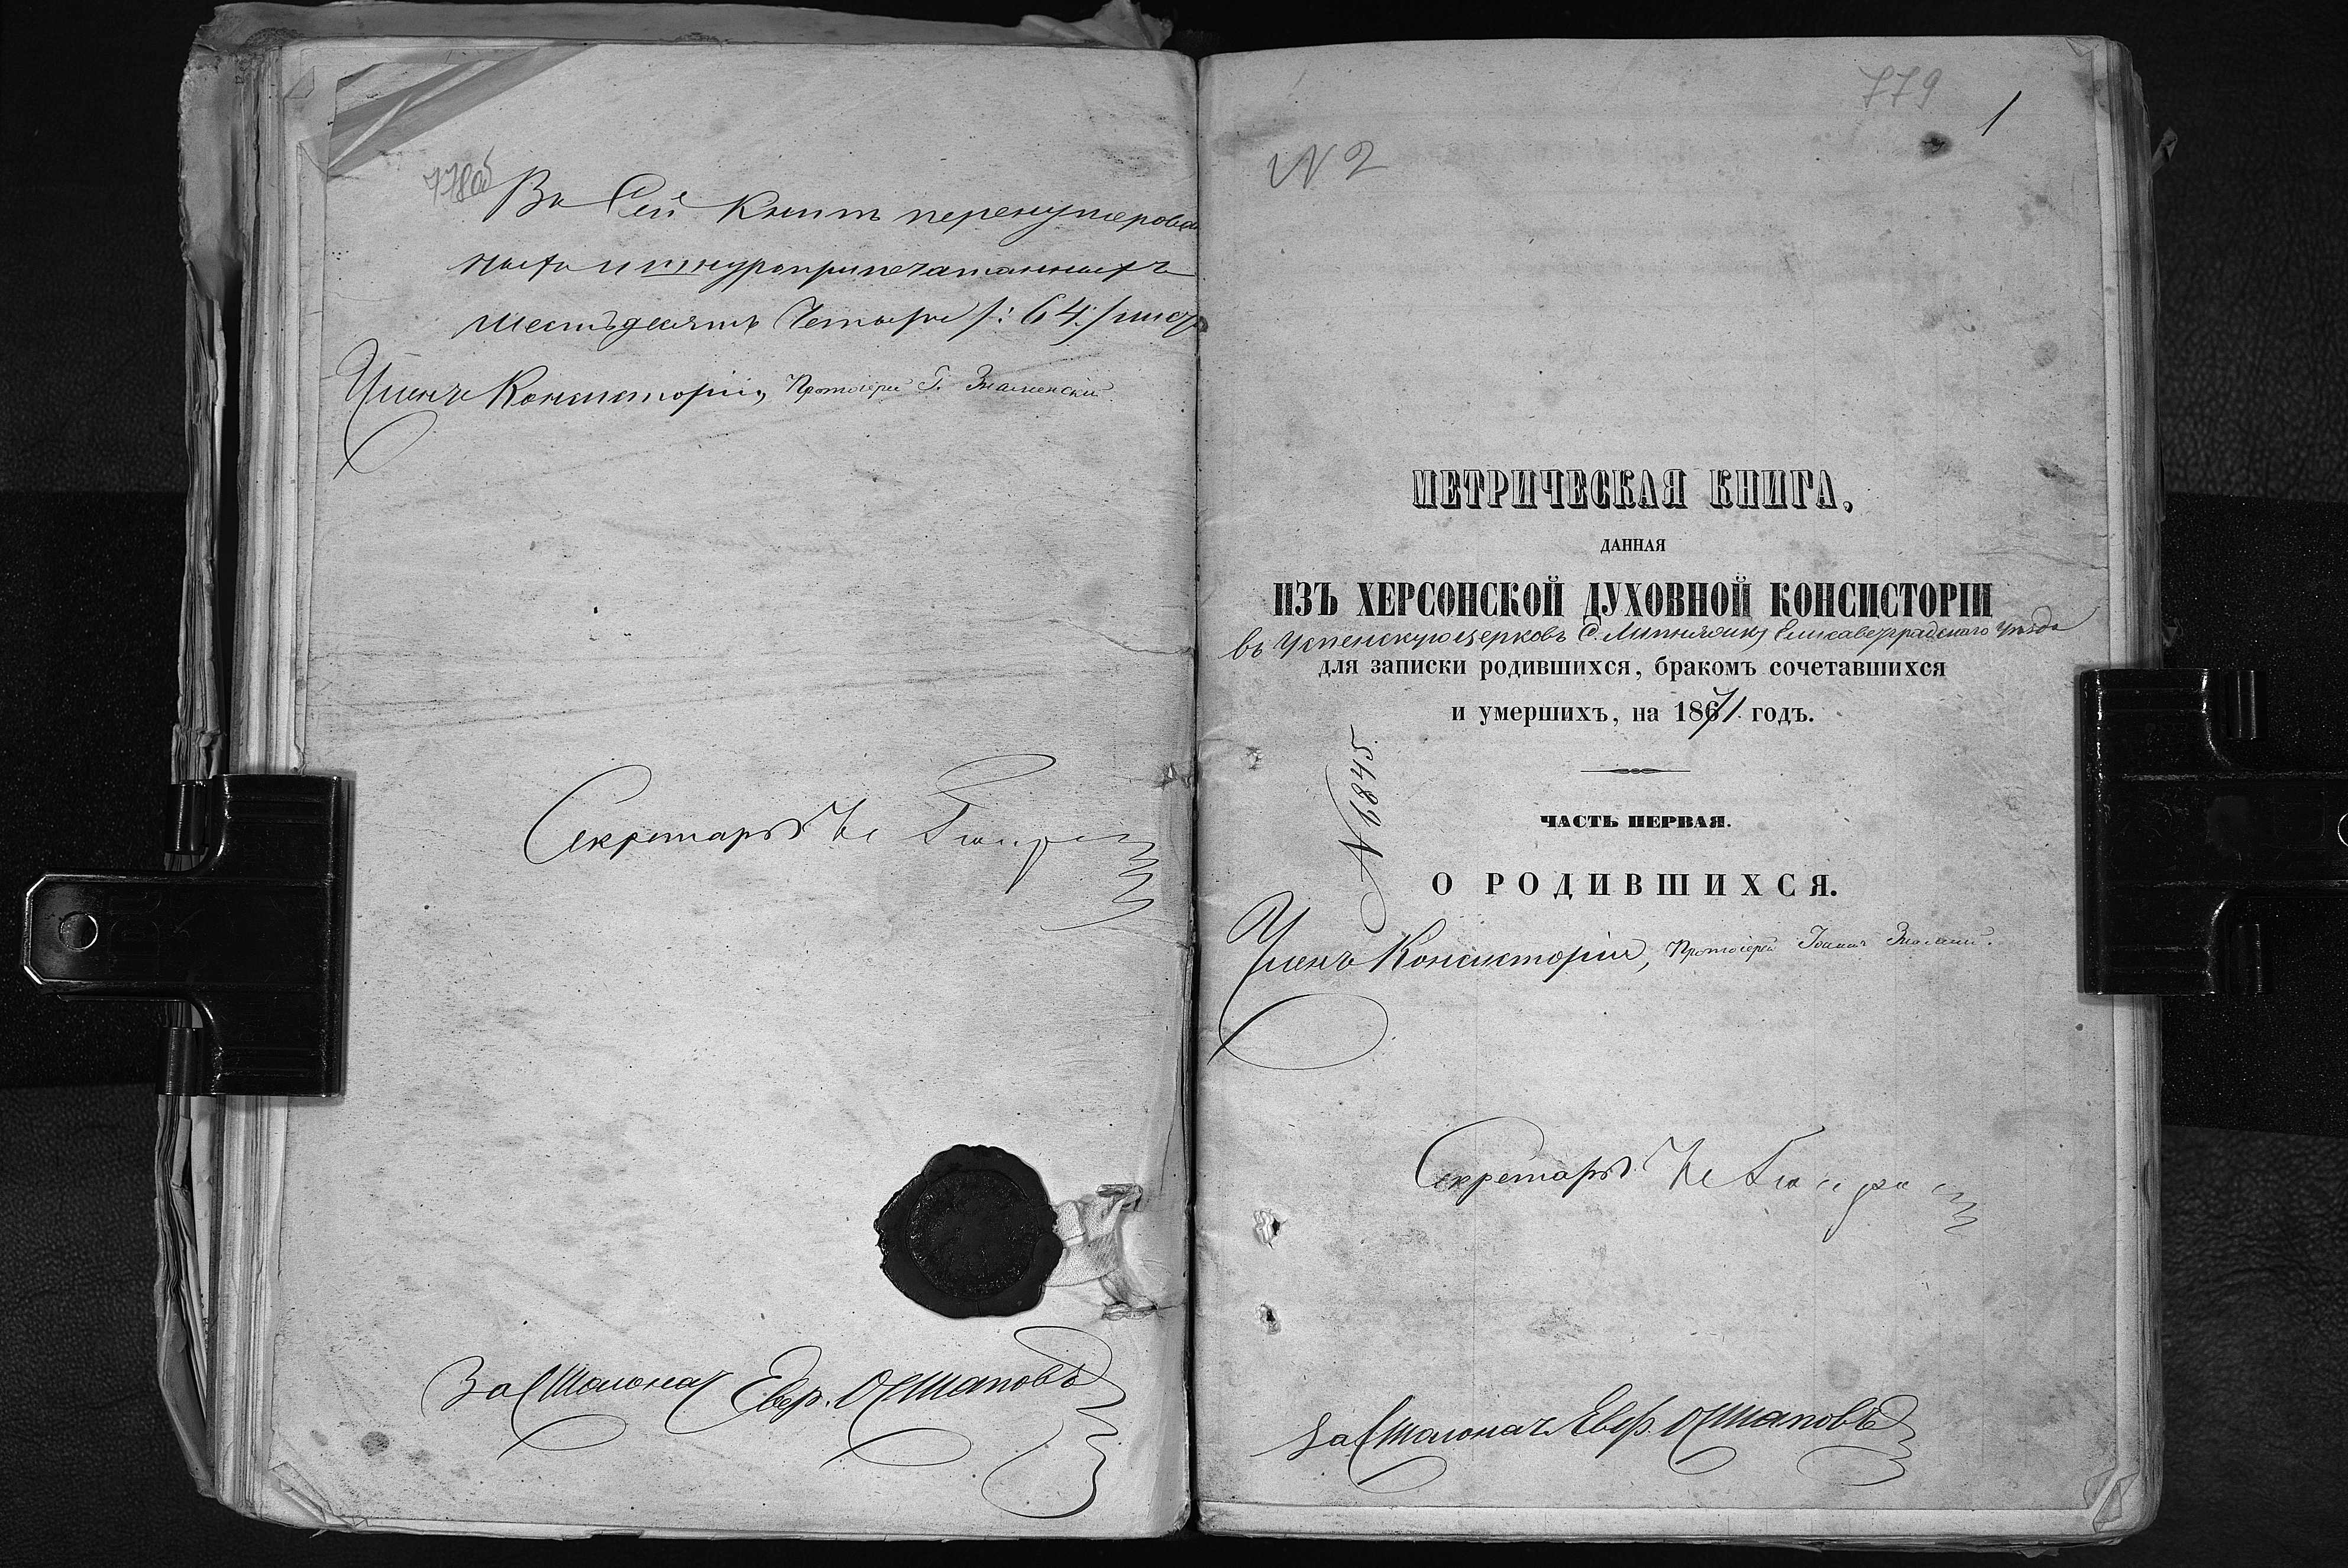 778об
Въ Сей Книгѣ перенумерован
ныхъ и шнуроприпечатанныхъ
шестьдесятъ Четыре /: 64 :/ лист
Членъ Консисторіи, Протоіерей Г. Знаменскій.
Секретарь
За Столонач Евф. Остаповъ
779
1
N 2
МЕТРИЧЕСКАЯ КНИГА,
ДАННАЯ
ИЗЪ ХЕРСОНСКОЙ ДУХОВНОЙ КОНСИСТОРІИ
въ Успенскую церковь С. Елисаветградского уѣзда
для записки родившихся, бракомъ сочетавшихся
и умершихъ, на 1871 годъ.
N 6845.
ЧАСТЬ ПЕРВАЯ.
О РОДИВШИХСЯ.
Членъ Консисторіи, Протоіерей
Секретарь
За Столонач. Евф. Остаповъ